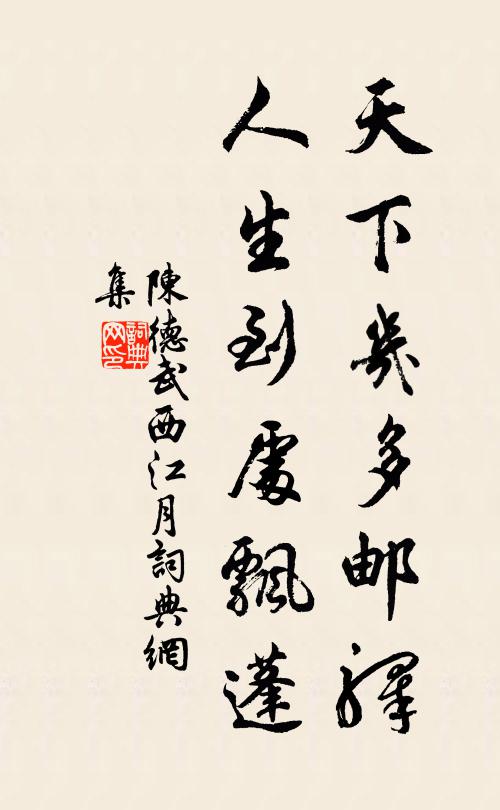 天下幾多邮驛
人生到處飄蓬
陳德武西江月詞典網
集
詞典網印